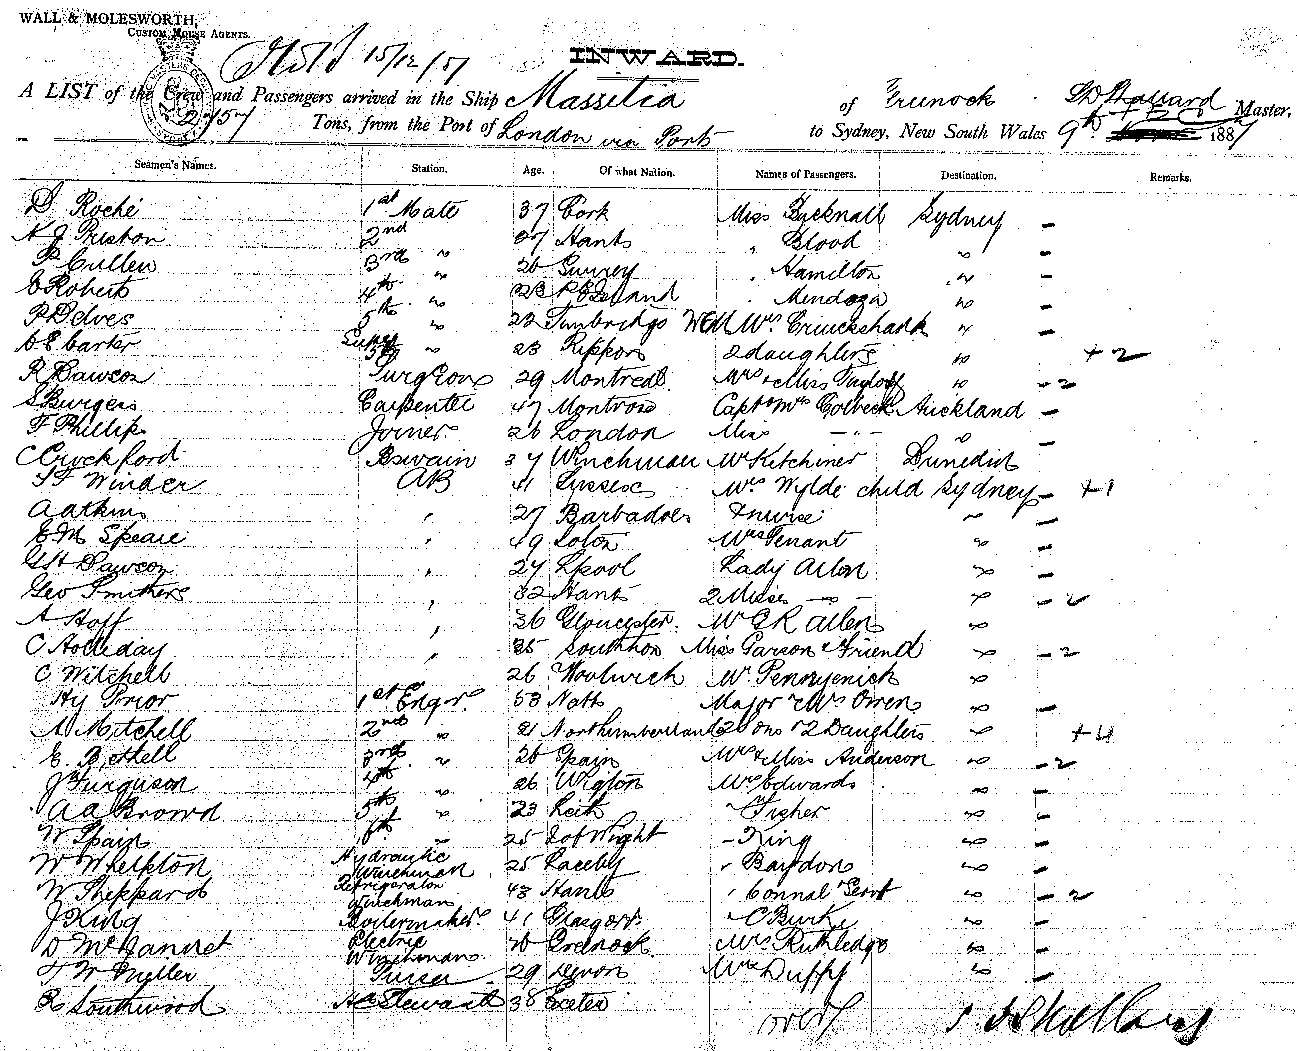 WALL & MOLESWORTH,
CUSTOM HOUSE AGENTS.
15/12/87
INWARD.
A LIST of the Crew and Passengers arrived in the Ship Massilia of Greenock Master,
2757 Tons, from the Port of London via Ports to Sydney, New South Wales 9th 1887
Seamen's Names. Station. Age. Of what Nation. Names of Passengers. Destination. Remarks.
D Roche 1st Mate 37 Cork Miss Bicknall Sydney -
N J Preston 2nd " 27 Hants " Blood " -
P Cullen 3rd " 26 Surrey " Hamilton " -
C Roberts 4th " 23 Ireland " Mendoza " -
P Delves 5th " 22 Tunbridge Mrs Cruickshank "
C E Carter Super 5th " 23 Rippon 2 daughters " +2
R Dawson Surgeon 29 Montreal Mrs & Miss Tayloff " -2
S Burgess Carpenter 47 Montrose Capt & Mrs Colbeck Auckland -
F Phillips Joiner 26 London Miss -"- " -
C Crockford Bswain 37 Winchman Mr Kitchiner Dunedin -
T F Winder AB 41 Sussex Mrs Wylde child Sydney - +1
A Atkins " 27 Barbadoes & nurse " -
E M Speare " 49 Mrs Tenant " -
G H Dawson " 27 Lpool Lady Allen " -
Geo Smithers " 32 Hants 2 Misses -"- " -2
A Hoff " 36 Gloucester Mr G R Allen "
C Holliday " 35 Southton Miss Garson & Friend " -2
C Witchell 26 Woolwich Mr Pennyenick "
Hy Prior 1st Engr. 53 Major & Mrs Owen " -
A Mitchell 2nd " Northumberland 2 Sons & 2 Daughters " +4
E. Bethell 3rd " 26 Spain Mrs & Miss Anderson " -2
J Ferguson 4th 26 Wigton Mr Edwards " -
A A Brown 5th " 23 Leith " Fisher " -
W Spain 6th " 25 I of Wight " King " -
W Whelpton Hydraulic Winchman 25 Laceby " Baydon " -
W Sheppard Refrigerator Winchman 43 Hants " Connal & Servt " -2
J King Boilermaker 41 Glasgow " C Burke " -
D Electric Winchman 20 Greenock Mrs Rutledge " -
T W Miller Purser 29 Devon Mrs Duffy " -
R Southwood Hd Steward 38 Exeter
over